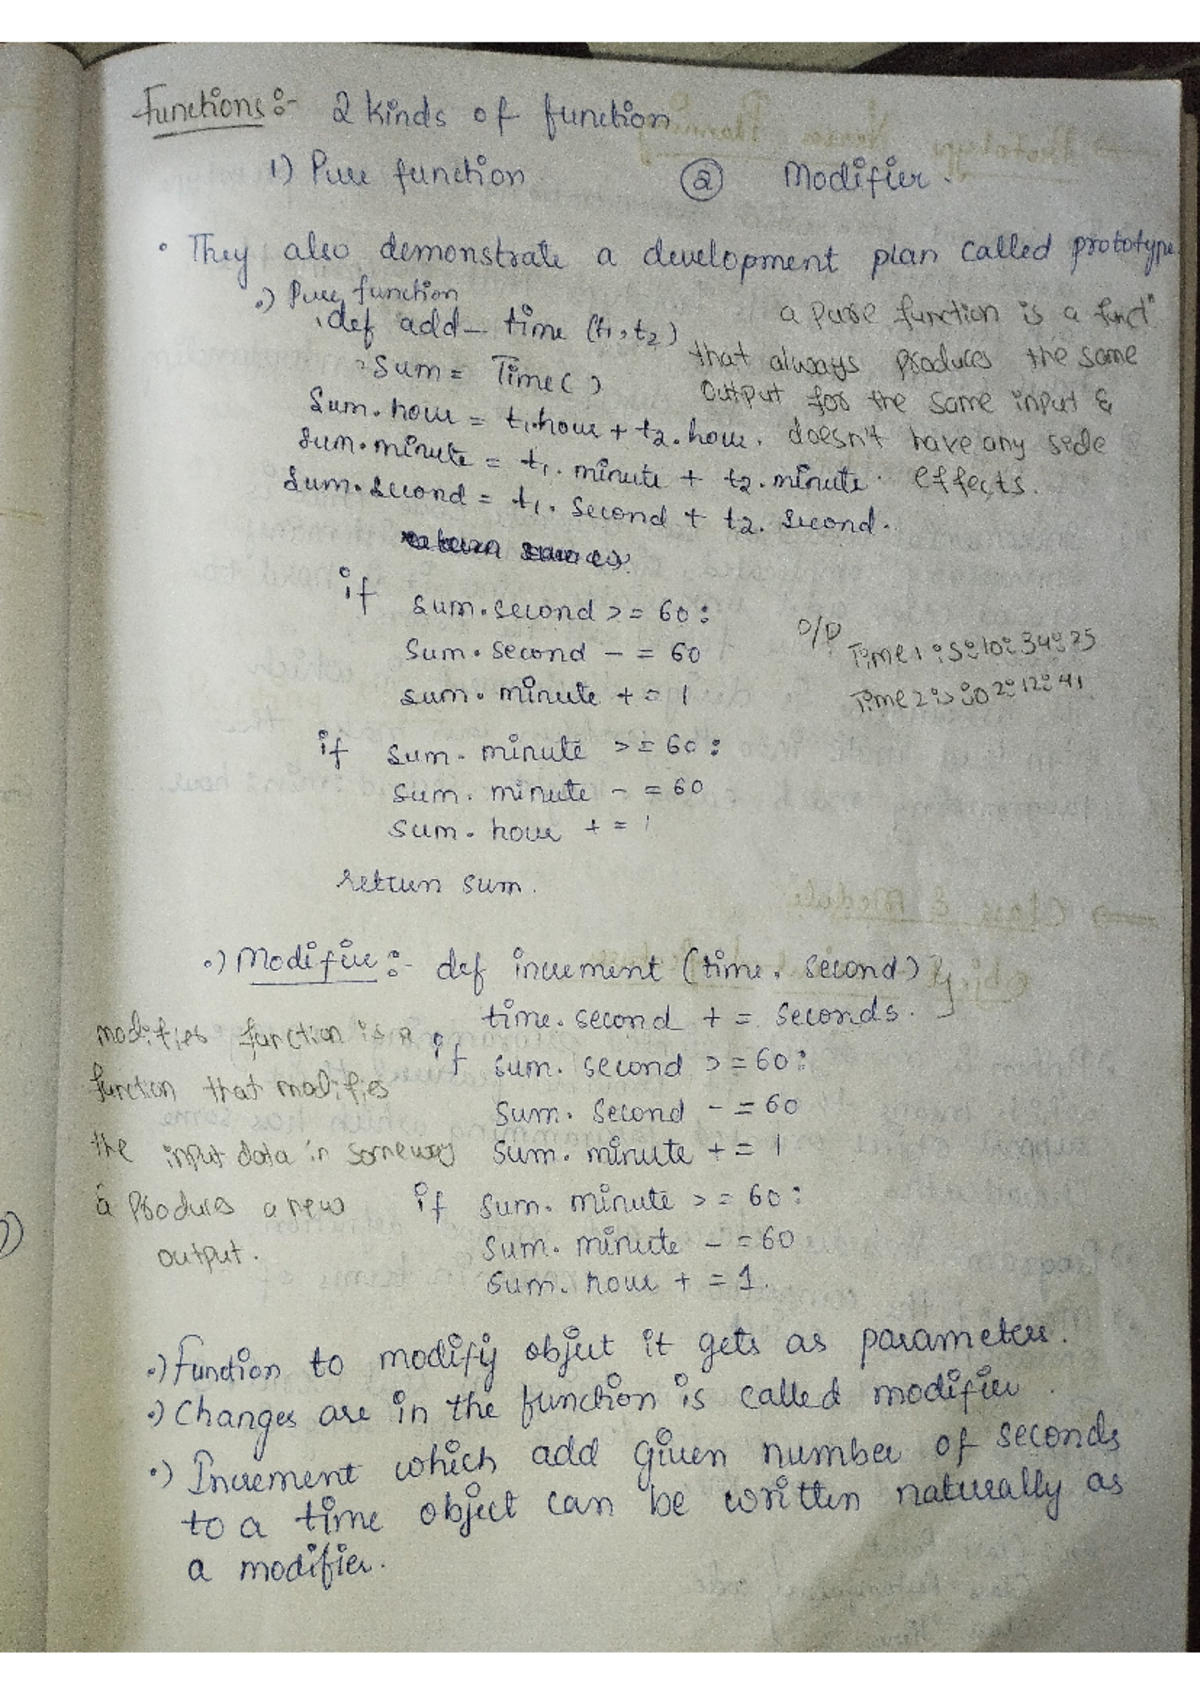 Functions :- 2 kinds of function
1) Pure function ② Modifier.
• They also demonstrate a development plan called prototype
•) Pure function
def add_ time (t1, t2)
Sum = Time( )
Sum. hour = t1.hour + t2. hour.
Sum. minute = t1. minute + t2. minute.
Sum. Second = t1. Second + t2. Second.
a pure function is a funct^n
that always produces the same
output for the same input &
doesn't have any side
effects.
if sum. second > = 60 :
Sum. second - = 60
sum. minute + = 1
O/P
Time 1 is : 10 : 34 : 25
Time 2 is : 02 : 12 : 41
if sum. minute > = 60 :
sum. minute - = 60
sum. hour + = 1
return sum.
•) Modifier :- def increment (time, second) }
time. second + = seconds.
if sum. second > = 60 :
Sum. Second - = 60
Sum. minute + = 1
if sum. minute > = 60 :
Sum. minute - = 60
Sum. hour + = 1.
modifies function is a
function that modifies
the input data in someway
& Produces a new
output.
•) Function to modify object it gets as parameter.
•) Changes are in the function is called modifier.
•) Increment which add given number of seconds
to a time object can be written naturally as
a modifier.